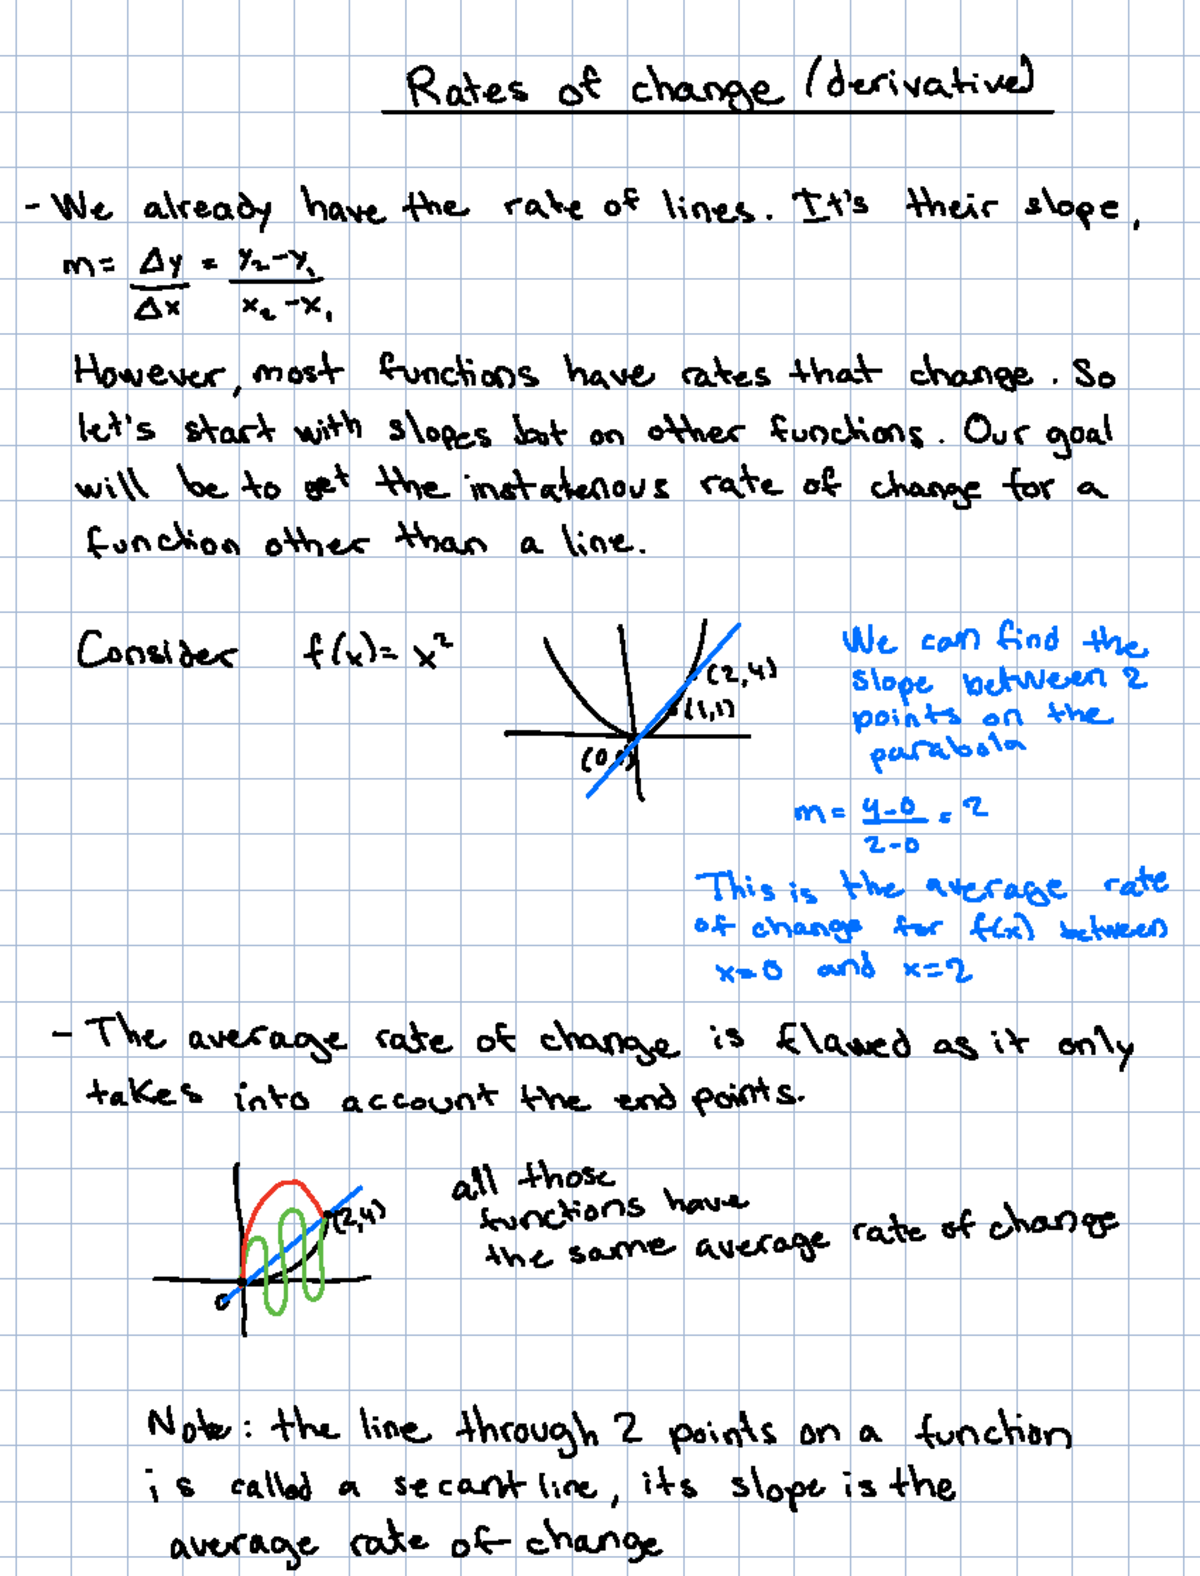 Rates of change (derivative)
- We already have the rate of lines. It's their slope,
m = Δy/Δx = y₂-y₁/x₂-x₁
However, most functions have rates that change. So
let's start with slopes but on other functions. Our goal
will be to get the instatenous rate of change for a
function other than a line.
Consider f(x)= x²
(2,4)
(1,1)
(0,0)
We can find the
slope between 2
points on the
parabola
m = 4-0/2-0 = 2
This is the average rate
of change for f(x) between
x=0 and x=2
- The average rate of change is flawed as it only
takes into account the end points.
(2,4)
0
all those
functions have
the same average rate of change
Note: the line through 2 points on a function
is called a secant line, its slope is the
average rate of change